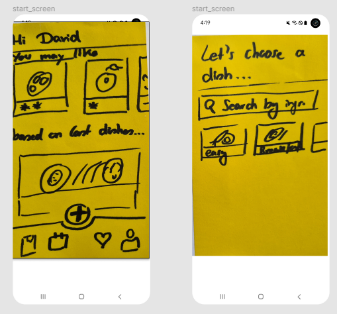 start_screen
Hi David
You may like
based on last dishes...
start_screen
4:19
Let's choose a
dish...
Search by ingr.
easy
Breakfast